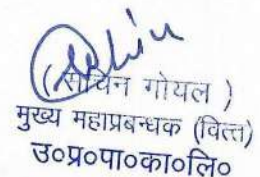 (सचिन गोयल)
मुख्य महाप्रबन्धक (वित्त)
उ०प्र०पा०का०लि०